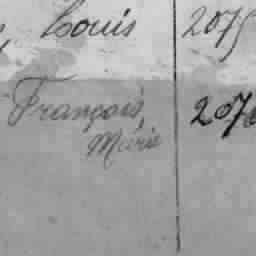 , Louis 2075
François, 207
Marie